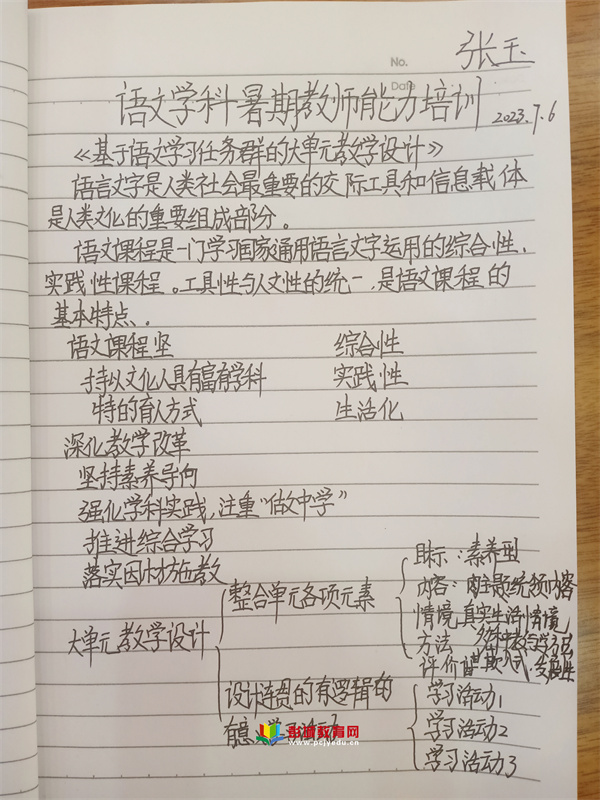 张玉
No.
Date
语文学科暑期教师能力培训 2023.7.6
《基于语文学习任务群的大单元教学设计》
语言文字是人类社会最重要的交际工具和信息载体
是人类文化的重要组成部分。
语文课程是一门学习国家通用语言文字运用的综合性、
实践性课程。工具性与人文性的统一,是语文课程的
基本特点、.
语文课程坚 综合性
持以文化人具有富有学科 实践性
特的育人方式 生活化
深化教学改革
坚持素养导向
强化学科实践,注重“做中学”
推进综合学习
落实因材施教
目标:素养型
整合单元各项元素 内容: 统领内容
情境 真实生活情境
大单元教学设计 方法
评价
设计连贯的有逻辑的 学习活动1
有意义学习活动 学习活动2
学习活动3
彭城教育网
www.pcjyedu.cn